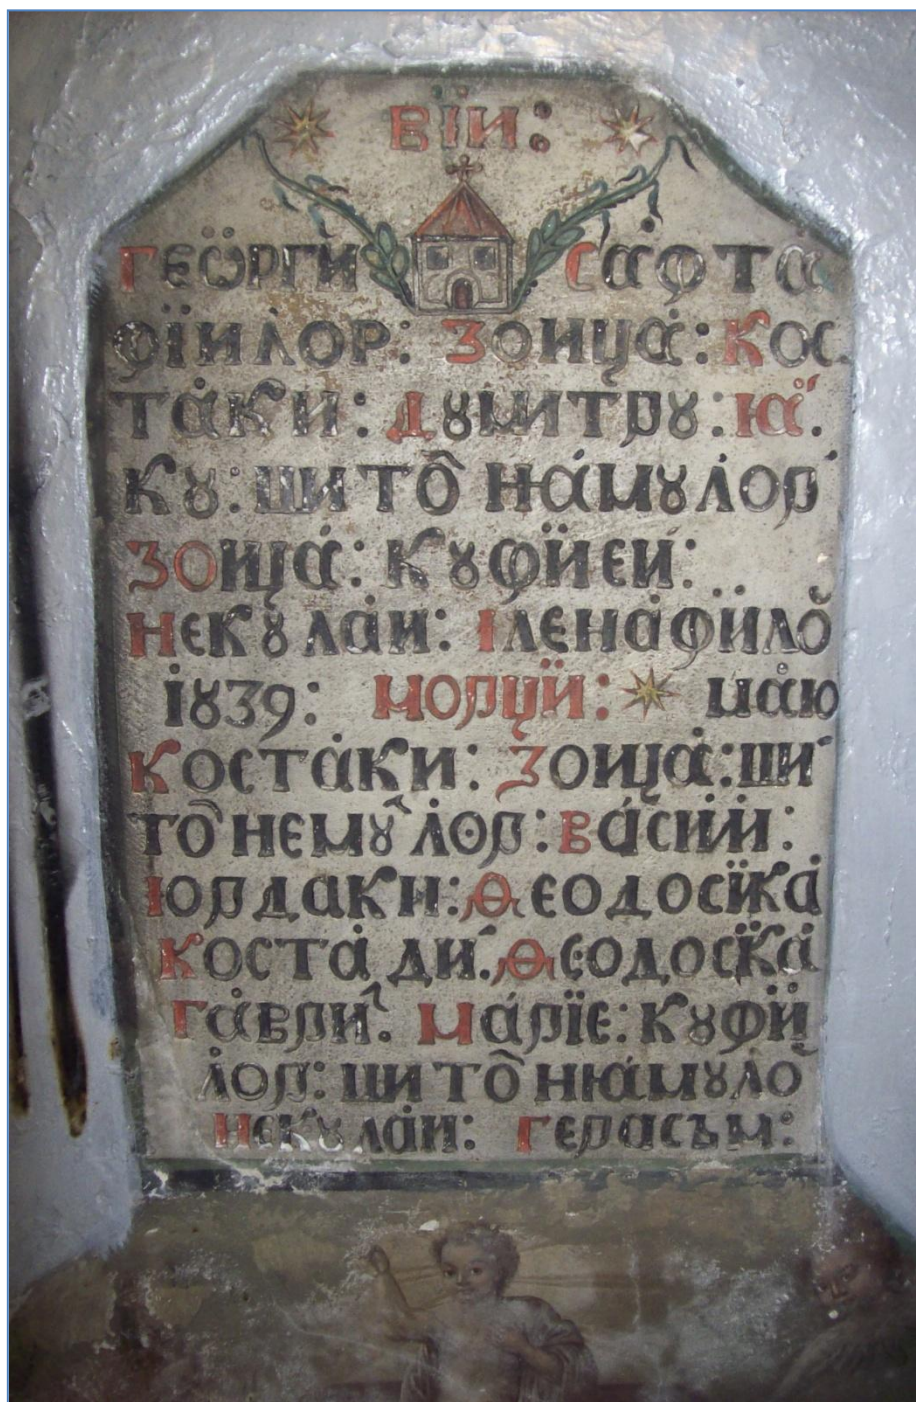 ВІИ:
ГЕѠРГИ САФТА
ФІИЛОР: ЗОИЦА: КОС
ТАКИ: ДꙊМИТРꙊ: ІА
КꙊ: ШИ ТО НѢМꙊЛОР
ЗОИЦА: КꙊФІИЕИ:
НЕКꙊЛАИ: ІЛЕНА ФІИЛО
1839: МОРЦІИ: МАІО
КОСТАКИ: ЗОИЦА: ШИ
ТО НЕМꙊЛОР: ВАСИЛИ:
ІОРДАКИ: ѲЕОДОСІКА
КОСТАДИ. ѲЕОДОСІКА
ГАВРИЛ. МАРІЕ: КꙊФІИ
ЛОР: ШИ ТО НЮАМꙊЛО
НЕКꙊЛАИ: ГЕРАСЪМ: